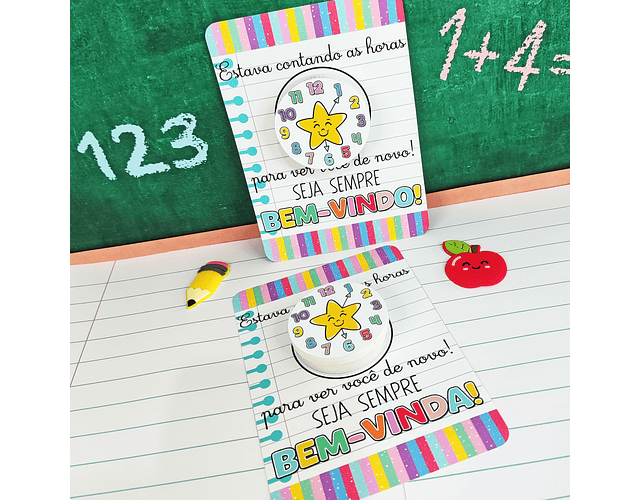 1+4=
123
Estava contando as horas
11 12 1
10 2
9 3
8 4
7 6 5
para ver você de novo!
SEJA SEMPRE
BEM-VINDO!
Estava s horas
11 12 1
10 2
9 3
8 4
7 6 5
para ver você de novo!
SEJA SEMPRE
BEM-VINDA!